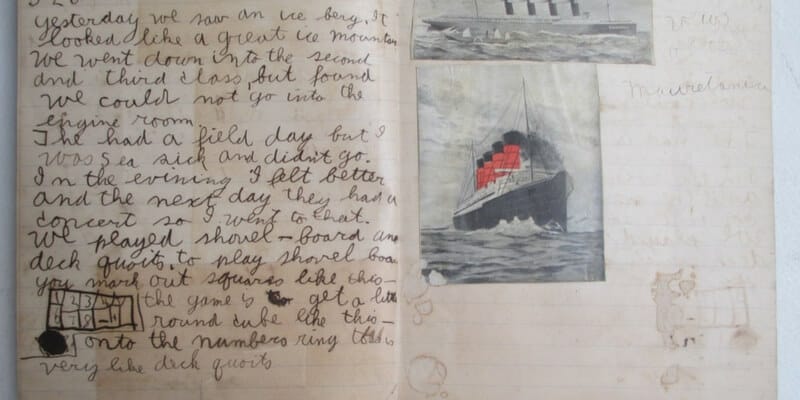 yesterday we saw an ice berg. It
looked like a great ice mountain
We went down into the second
and third class, but found
we could not go into the
engine room.
The had a field day but I
was sea sick and didn't go.
In the evining I felt better
and the next day they had a
concert so I went to that.
We played shovel-board and
deck quoits. to play shovel boa
you mark out squares like this-
1 2 3
the game is to get a litt
round cube like this-
onto the numbers ring t is
very like deck quoits
Mauretania